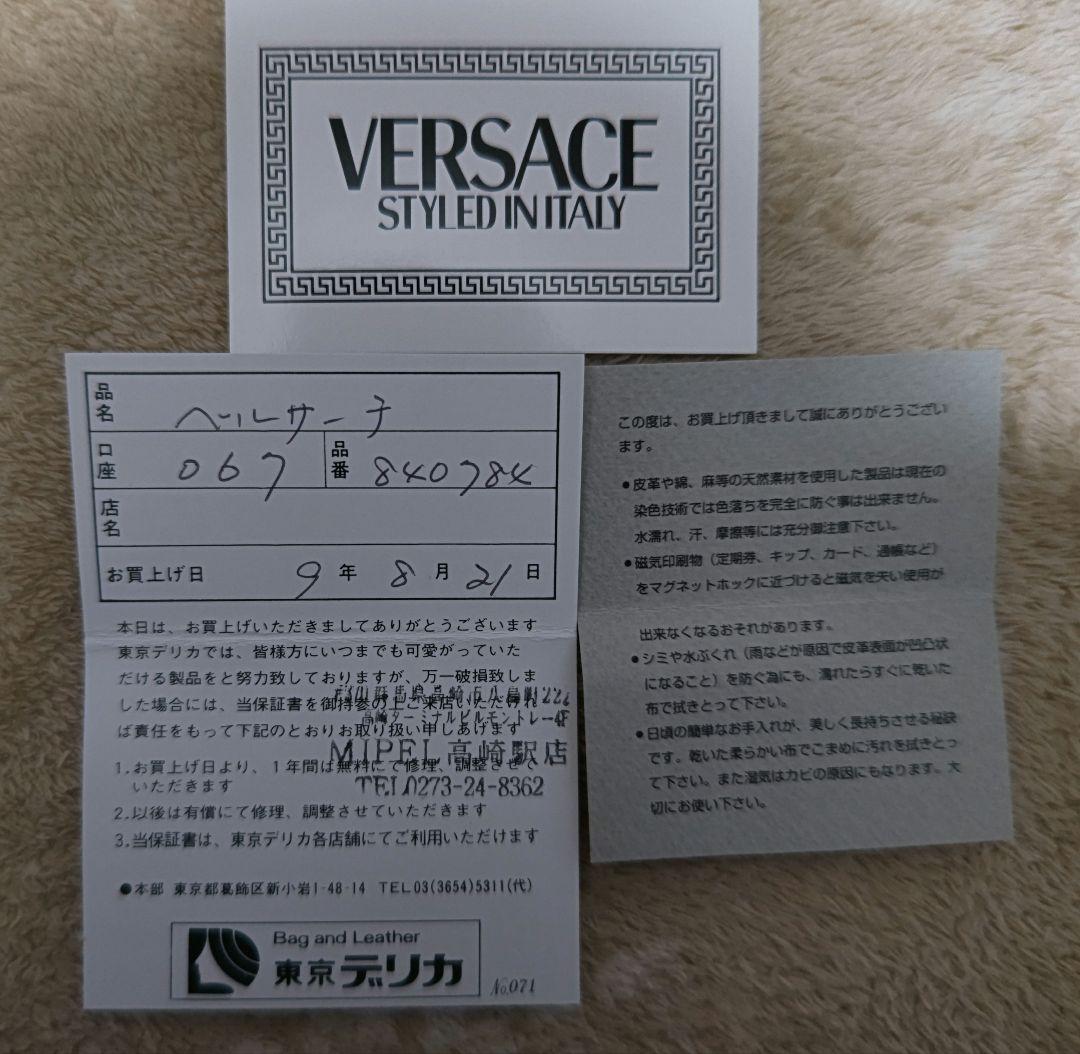 VERSACE
STYLED IN ITALY
品名 ベルサーチ
口座 067 品番 840784
店名
お買上げ日 9年 8月 21日
本日は、お買上げいただきましてありがとうございます
東京デリカでは、皆様方にいつまでも可愛がっていた
だける製品をと努力致しておりますが、万一破損致しま
した場合には、当保証書を御持参の上ご来店いただけれ
ば責任をもって下記のとおりお取り扱い申しあげます
群馬県高崎市八島町222
高崎ターミナルビルモントレー4F
MIPEL高崎駅店
TEL0273-24-8362
1.お買上げ日より、1年間は無料にて修理、調整させて
いただきます
2.以後は有償にて修理、調整させていただきます
3.当保証書は、東京デリカ各店舗にてご利用いただけます
●本部 東京都葛飾区新小岩1-48-14 TEL03(3654)5311(代)
Bag and Leather
東京デリカ
No.071
この度は、お買上げ頂きまして誠にありがとうござい
ます。
●皮革や綿、麻等の天然素材を使用した製品は現在の
染色技術では色落ちを完全に防ぐ事は出来ません。
水濡れ、汗、摩擦等には充分御注意下さい。
●磁気印刷物（定期券、キップ、カード、通帳など）
をマグネットホックに近づけると磁気を失い使用が
出来なくなるおそれがあります。
●シミや水ぶくれ（雨などが原因で皮革表面が凹凸状
になること）を防ぐ為にも、濡れたらすぐに乾いた
布で拭きとって下さい。
●日頃の簡単なお手入れが、美しく長持ちさせる秘訣
です。乾いた柔らかい布でこまめに汚れを拭きとっ
て下さい。また湿気はカビの原因にもなります。大
切にお使い下さい。